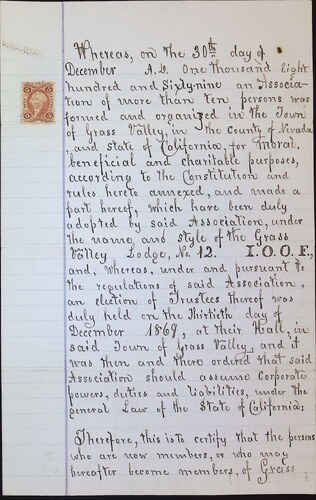 Whereas, on the 30th day of
December A.D. One thousand Eight
hundred and Sixty-nine an Associa-
tion of more than ten persons was
formed and organized in the Town
of Grass Valley, in The County of Nevada
, and state of California, for moral,
beneficial and charitable purposes,
according to the Constitution and
rules hereto annexed, and made a
part hereof, which have been duly
adopted by said Association, under
the name and style of the Grass
Valley Lodge, No. 12. I.O.O.F.,
and, whereas, under and pursuant to
the regulations of said Association,
an election of Trustees thereof was
duly held on the Thirtieth day of
December 1869, at their Hall, in
said Town of Grass Valley, and it
was then and there ordered that said
Association should assume Corporate
powers, duties and Liabilities, under the
general Law of the State of California:
Therefore, this is to certify that the persons
who are now members, or who may
hereafter become members, of Grass